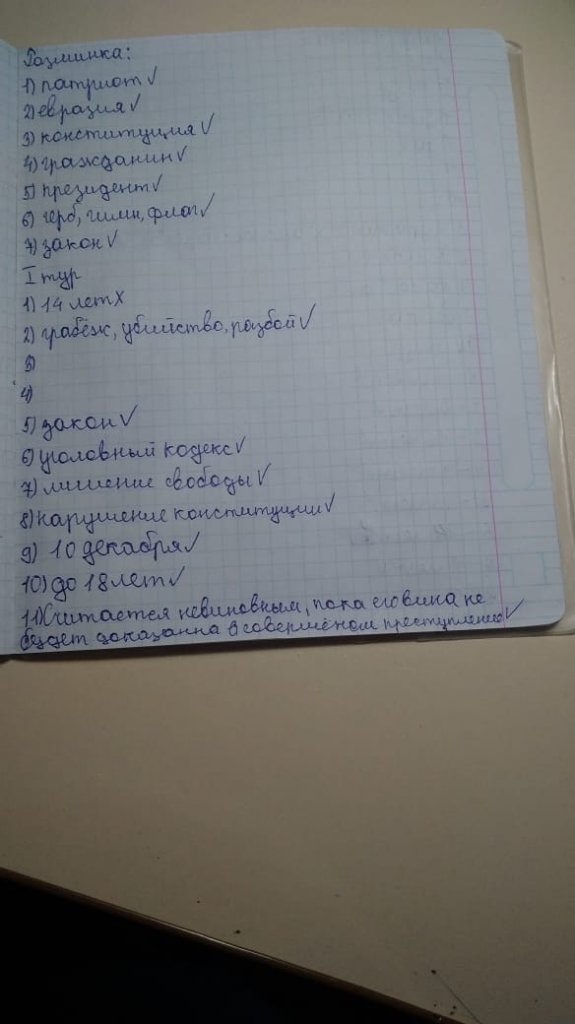 Разминка:
1) патриот ✓
2) евразия ✓
3) конституция ✓
4) гражданин ✓
5) президент ✓
6) герб, гимн, флаг ✓
7) закон ✓
I тур
1) 14 лет х
2) грабёж, убийство, разбой ✓
3)
4)
5) закон ✓
6) уголовный кодекс ✓
7) лишение свободы ✓
8) нарушение конституции ✓
9) 10 декабря ✓
10) до 18 лет ✓
11) Считается невиновным, пока его вина не
будет доказанна в совершёном преступлению ✓